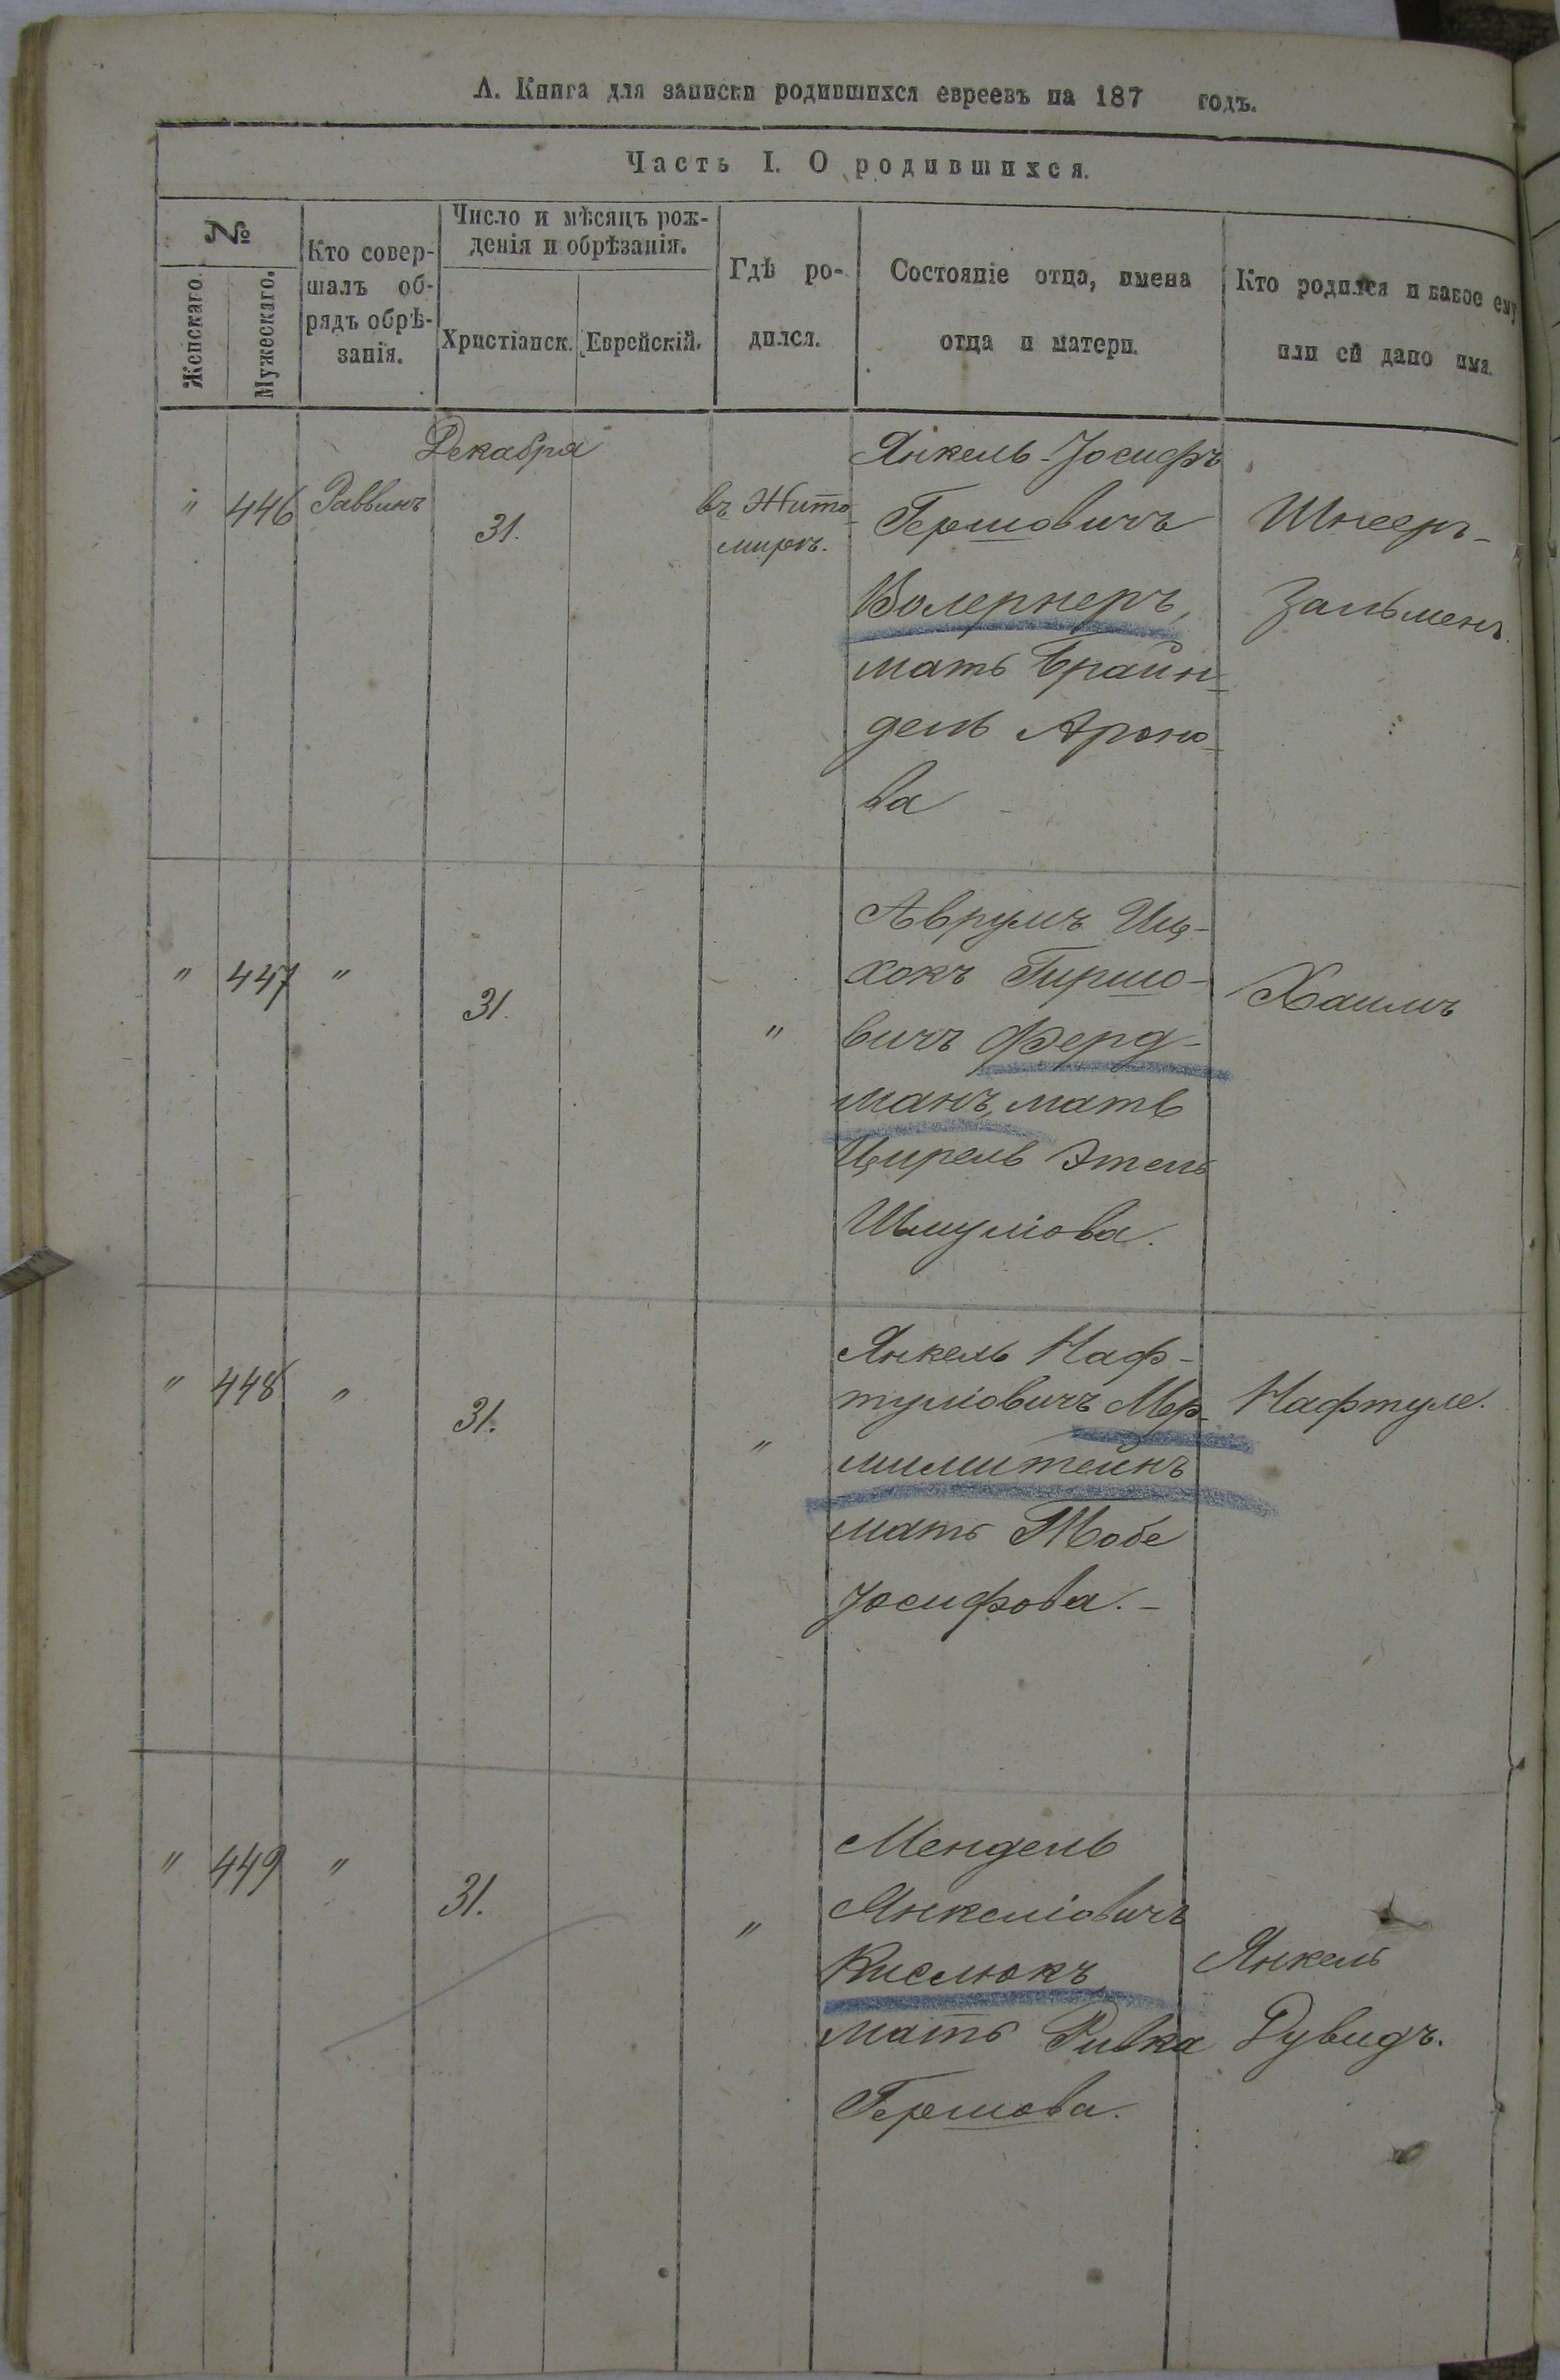 А. Книга для записки родившихся евреевъ на 187 годъ.
Часть I. О родившихся.
№
Женскаго.
Мужескаго.
Кто совер-
шалъ об-
рядъ обрѣ-
занія.
Число и мѣсяцъ рож-
денія и обрѣзанія.
Христіанск.
Еврейскій.
Гдѣ ро-
дился.
Состояніе отца, имена
отца и матери.
Кто родился и какое ему
или ей дано имя.
Декабря
" 446 Раввинъ
31.
въ Жито-
мирѣ.
Янкель-Іосифъ
Гершовичъ
Волернеръ,
мать Брайн-
дель Ароно-
ва
Шнееръ-
Зальменъ.
" 447 "
31.
"
Аврумъ Иц-
хокъ Гиршо-
вичъ Ферд-
манъ, мать
Цирель Этель
Шмуліова.
Хаимъ
" 448 "
31.
"
Янкель Наф-
туліовичъ Мер-
милштейнъ
мать Тобе
Іосифова.-
Нафтуле.
" 449 "
31.
"
Мендель
Янкеліовичъ
Кислюкъ,
мать Ривка
Гершова.
Янкель
Дувидъ.